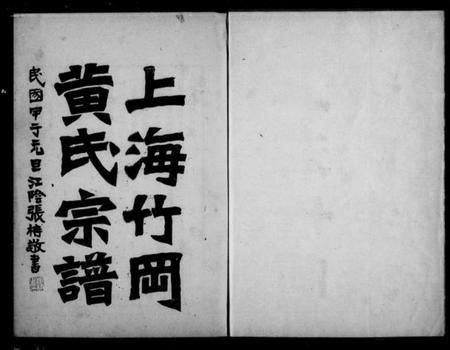 上海竹岡
黄氏宗譜
民國甲子元旦江陰張梅敬書